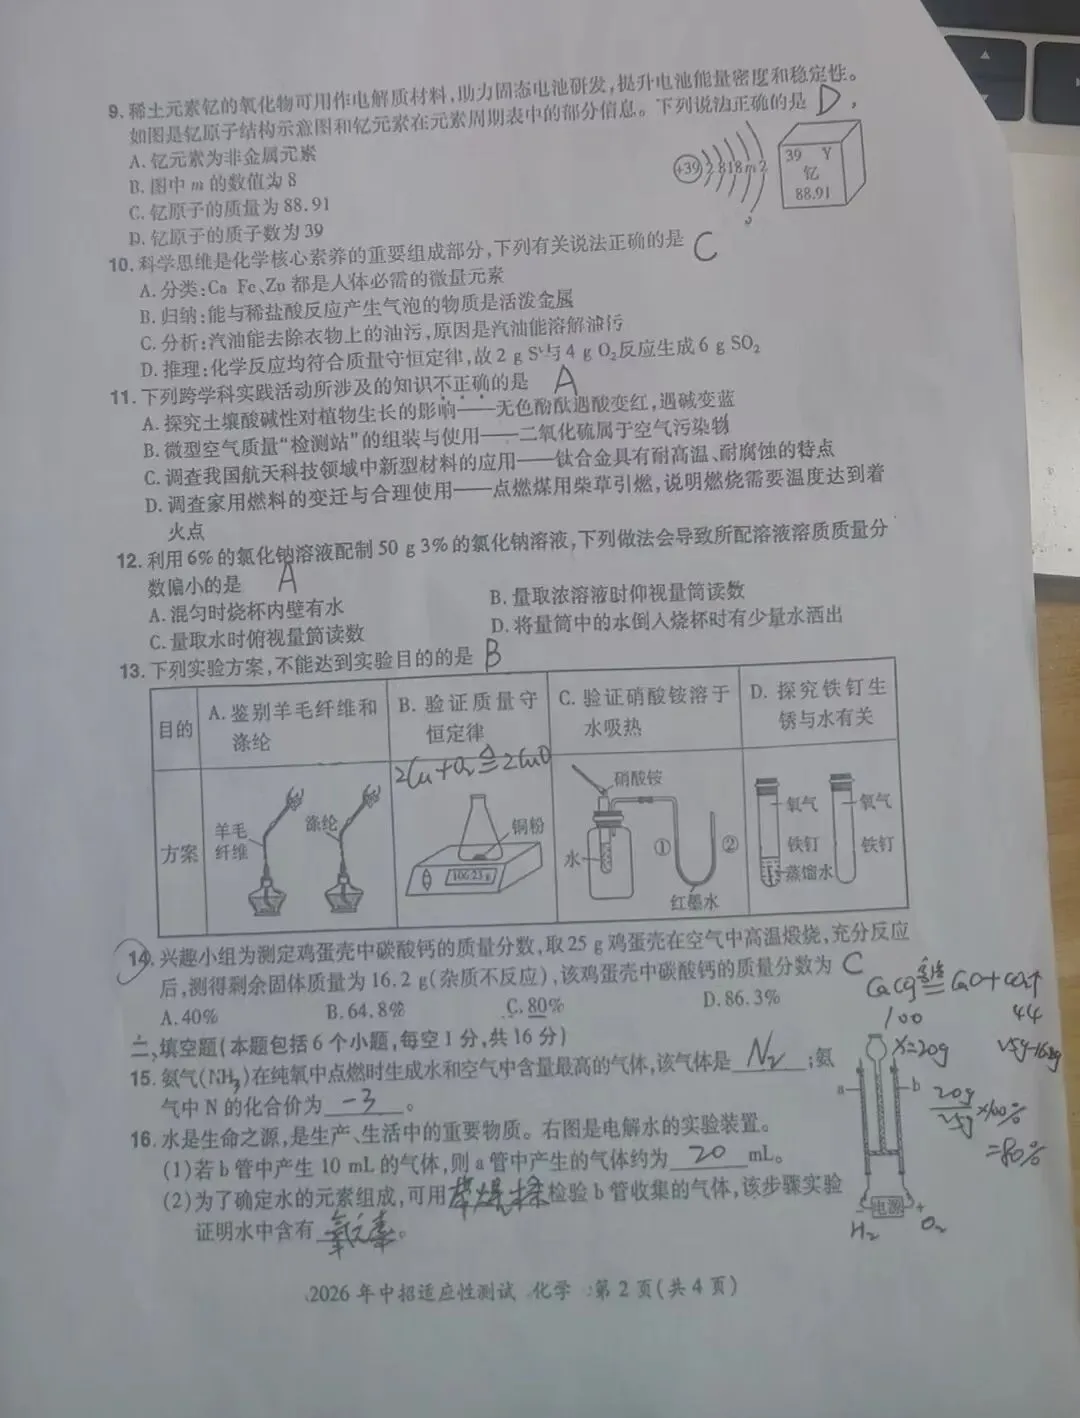 9. 稀土元素钇的氧化物可用作电解质材料,助力固态电池研发,提升电池能量密度和稳定性。
如图是钇原子结构示意图和钇元素在元素周期表中的部分信息。下列说法正确的是 D ,
A. 钇元素为非金属元素
B. 图中 m 的数值为 8
C. 钇原子的质量为 88.91
D. 钇原子的质子数为 39
+39 2 8 18 m 2
39 Y
钇
88.91
10. 科学思维是化学核心素养的重要组成部分,下列有关说法正确的是 C
A. 分类:Ca Fe、Zn 都是人体必需的微量元素
B. 归纳:能与稀盐酸反应产生气泡的物质是活泼金属
C. 分析:汽油能去除衣物上的油污,原因是汽油能溶解油污
D. 推理:化学反应均符合质量守恒定律,故 2 g S 与 4 g O₂反应生成 6 g SO₂
11. 下列跨学科实践活动所涉及的知识不正确的是 A
A. 探究土壤酸碱性对植物生长的影响——无色酚酞遇酸变红,遇碱变蓝
B. 微型空气质量“检测站”的组装与使用——二氧化硫属于空气污染物
C. 调查我国航天科技领域中新型材料的应用——钛合金具有耐高温、耐腐蚀的特点
D. 调查家用燃料的变迁与合理使用——点燃煤用柴草引燃,说明燃烧需要温度达到着
火点
12. 利用 6% 的氯化钠溶液配制 50 g 3% 的氯化钠溶液,下列做法会导致所配溶液溶质质量分
数偏小的是 A
A. 混匀时烧杯内壁有水
B. 量取浓溶液时仰视量筒读数
C. 量取水时俯视量筒读数
D. 将量筒中的水倒入烧杯时有少量水洒出
13. 下列实验方案,不能达到实验目的的是 B
目的
A. 鉴别羊毛纤维和
涤纶
B. 验证质量守
恒定律
C. 验证硝酸铵溶于
水吸热
D. 探究铁钉生
锈与水有关
方案
羊毛
纤维
涤纶
2Cu+O₂≜2CuO
铜粉
106.23 g
硝酸铵
水
①
②
红墨水
氧气
铁钉
蒸馏水
氧气
铁钉
14. 兴趣小组为测定鸡蛋壳中碳酸钙的质量分数,取 25 g 鸡蛋壳在空气中高温煅烧,充分反应
后,测得剩余固体质量为 16.2 g(杂质不反应),该鸡蛋壳中碳酸钙的质量分数为 C
A. 40%
B. 64.8%
C. 80%
D. 86.3%
CaCO₃ 高温 CaO+CO₂↑
100 44
x=20g 25g-16.2g
20g
25g
×100%
=80%
二、填空题(本题包括 6 个小题,每空 1 分,共 16 分)
15. 氨气(NH₃)在纯氧中点燃时生成水和空气中含量最高的气体,该气体是 N₂ ;氨
气中 N 的化合价为 -3 。
16. 水是生命之源,是生产、生活中的重要物质。右图是电解水的实验装置。
(1)若 b 管中产生 10 mL 的气体,则 a 管中产生的气体约为 20 mL。
(2)为了确定水的元素组成,可用 带燃 检验 b 管收集的气体,该步骤实验
证明水中含有 氧元素 。
a
b
- 电源 +
H₂
O₂
2026 年中招适应性测试 化学 第 2 页(共 4 页)